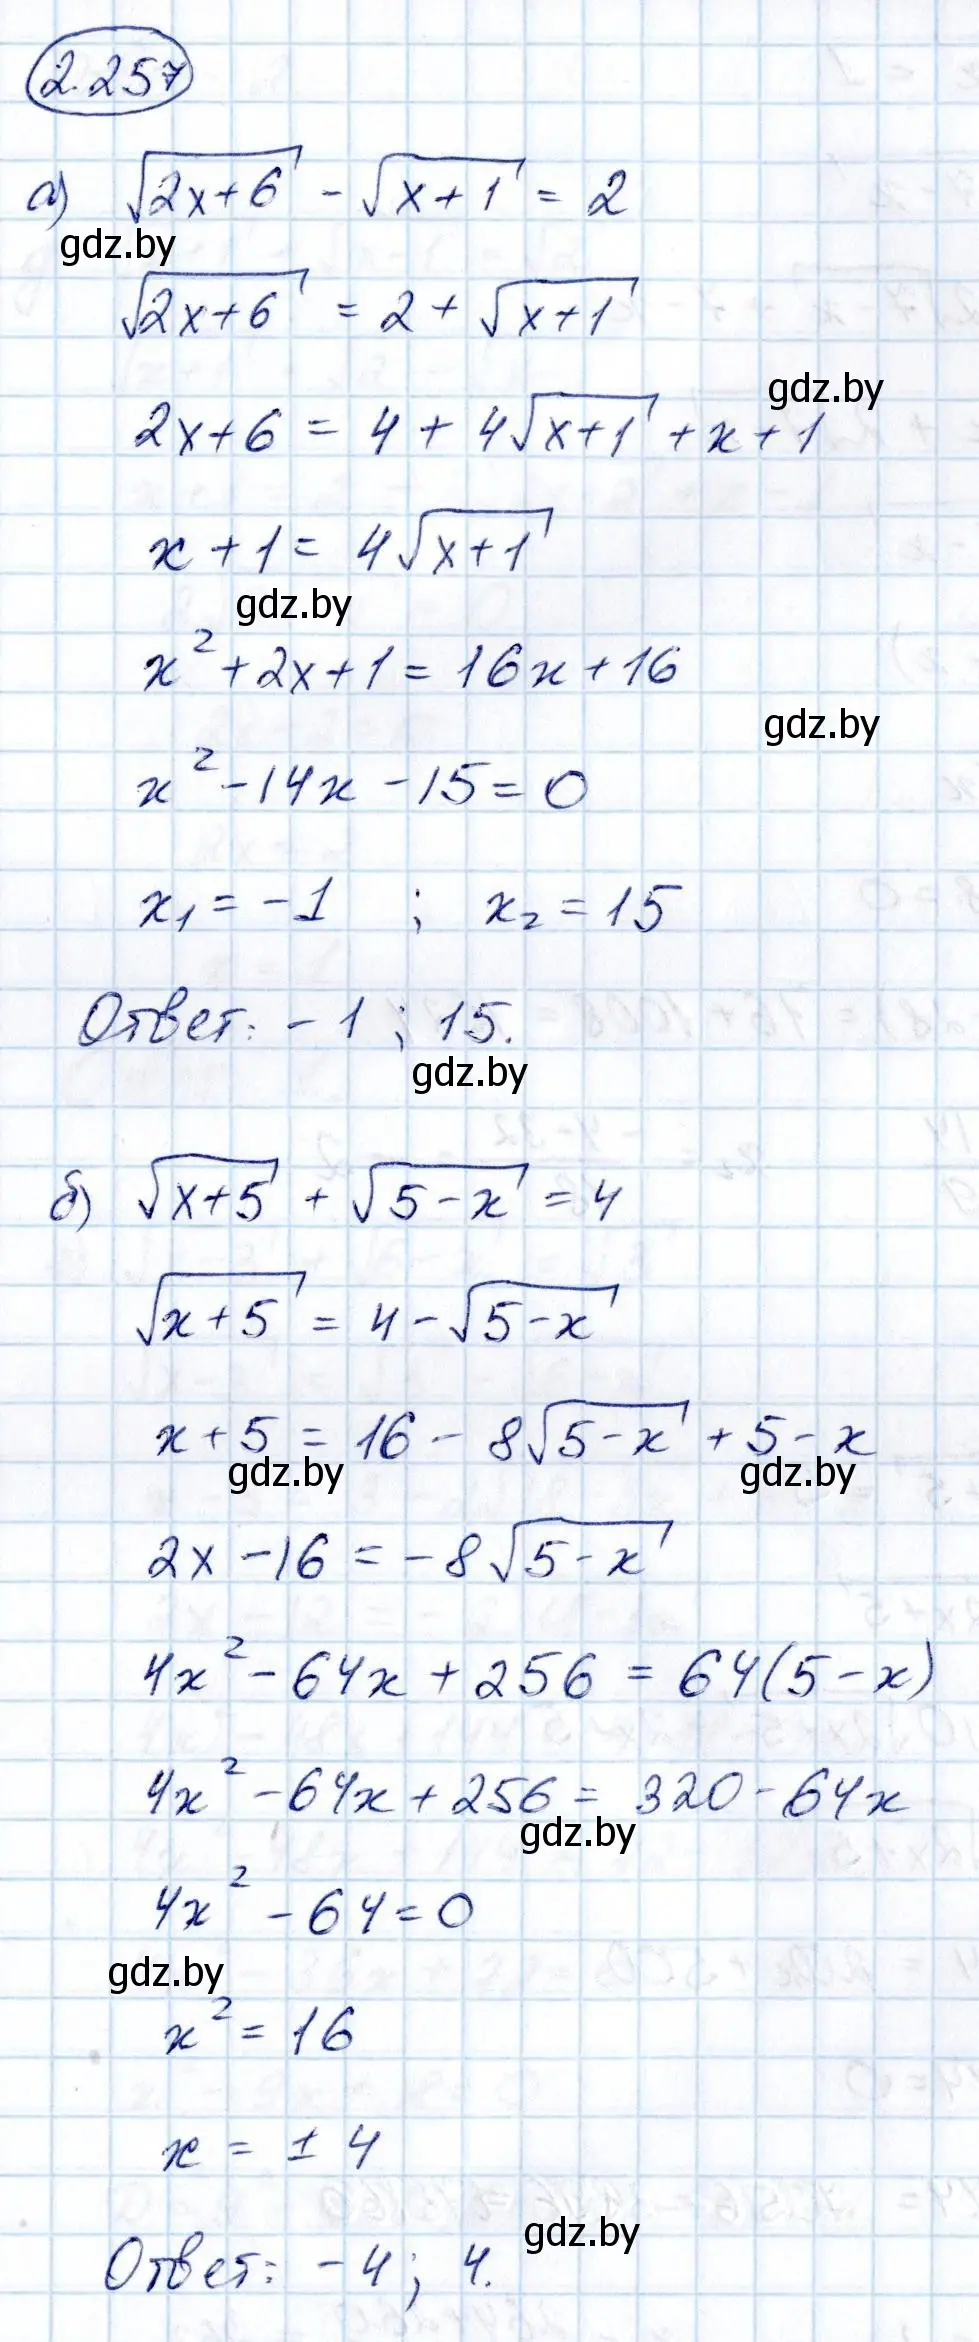 2.257
а) √(2x+6) - √(x+1) = 2
gdz.by
√(2x+6) = 2 + √(x+1)
gdz.by
2x+6 = 4 + 4√(x+1) + x + 1
x + 1 = 4√(x+1)
gdz.by
x² + 2x + 1 = 16x + 16
gdz.by
x² - 14x - 15 = 0
x₁ = -1 ; x₂ = 15
Ответ: -1 ; 15.
gdz.by
б) √(x+5) + √(5-x) = 4
√(x+5) = 4 - √(5-x)
x + 5 = 16 - 8√(5-x) + 5 - x
gdz.by gdz.by
2x - 16 = -8√(5-x)
4x² - 64x + 256 = 64(5-x)
4x² - 64x + 256 = 320 - 64x
gdz.by
4x² - 64 = 0
gdz.by
x² = 16
x = ± 4
gdz.by
Ответ: -4 ; 4.